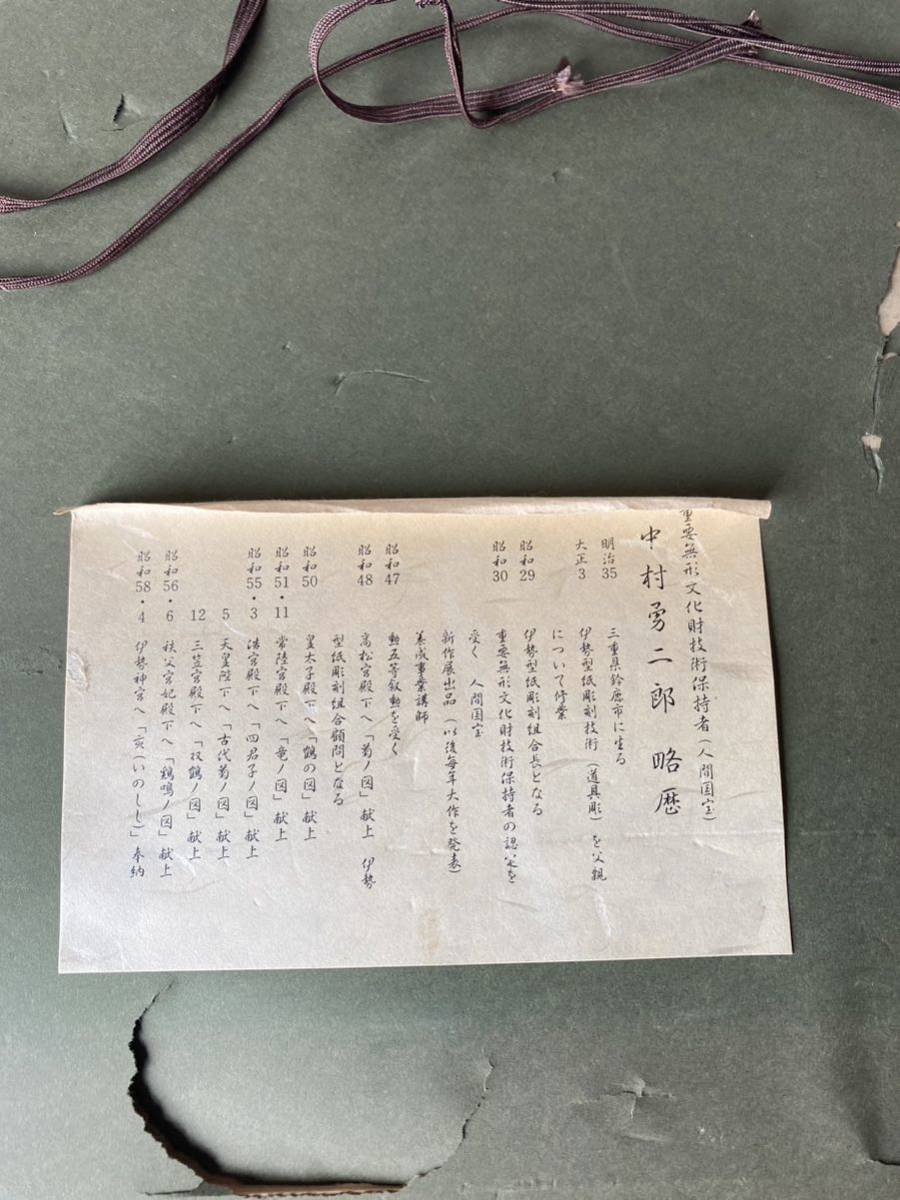 重要無形文化財技術保持者(人間国宝)
中村勇二郎 略歴
明治35 三重県鈴鹿市に生る
大正3 伊勢型紙彫刻技術(道具彫)を父親
について修業
昭和29 伊勢型紙彫刻組合長となる
昭和30 重要無形文化財技術保持者の認定を
受く 人間国宝
新作展出品(以後毎年大作を発表)
養成事業講師
昭和47 勲五等叙勲を受く
昭和48 高松宮殿下へ「菊ノ図」献上 伊勢
型紙彫刻組合顧問となる
昭和50 皇太子殿下へ「鶴の図」献上
昭和51・11 常陸宮殿下へ「竜ノ図」献上
昭和55・3 浩宮殿下へ「四君子ノ図」献上
5 天皇陛下へ「古代菊ノ図」献上
12 三笠宮殿下へ「双鶴ノ図」献上
昭和56・6 秩父宮妃殿下へ「鶴鳴ノ図」献上
昭和58・4 伊勢神宮へ「亥(いのしし)」奉納